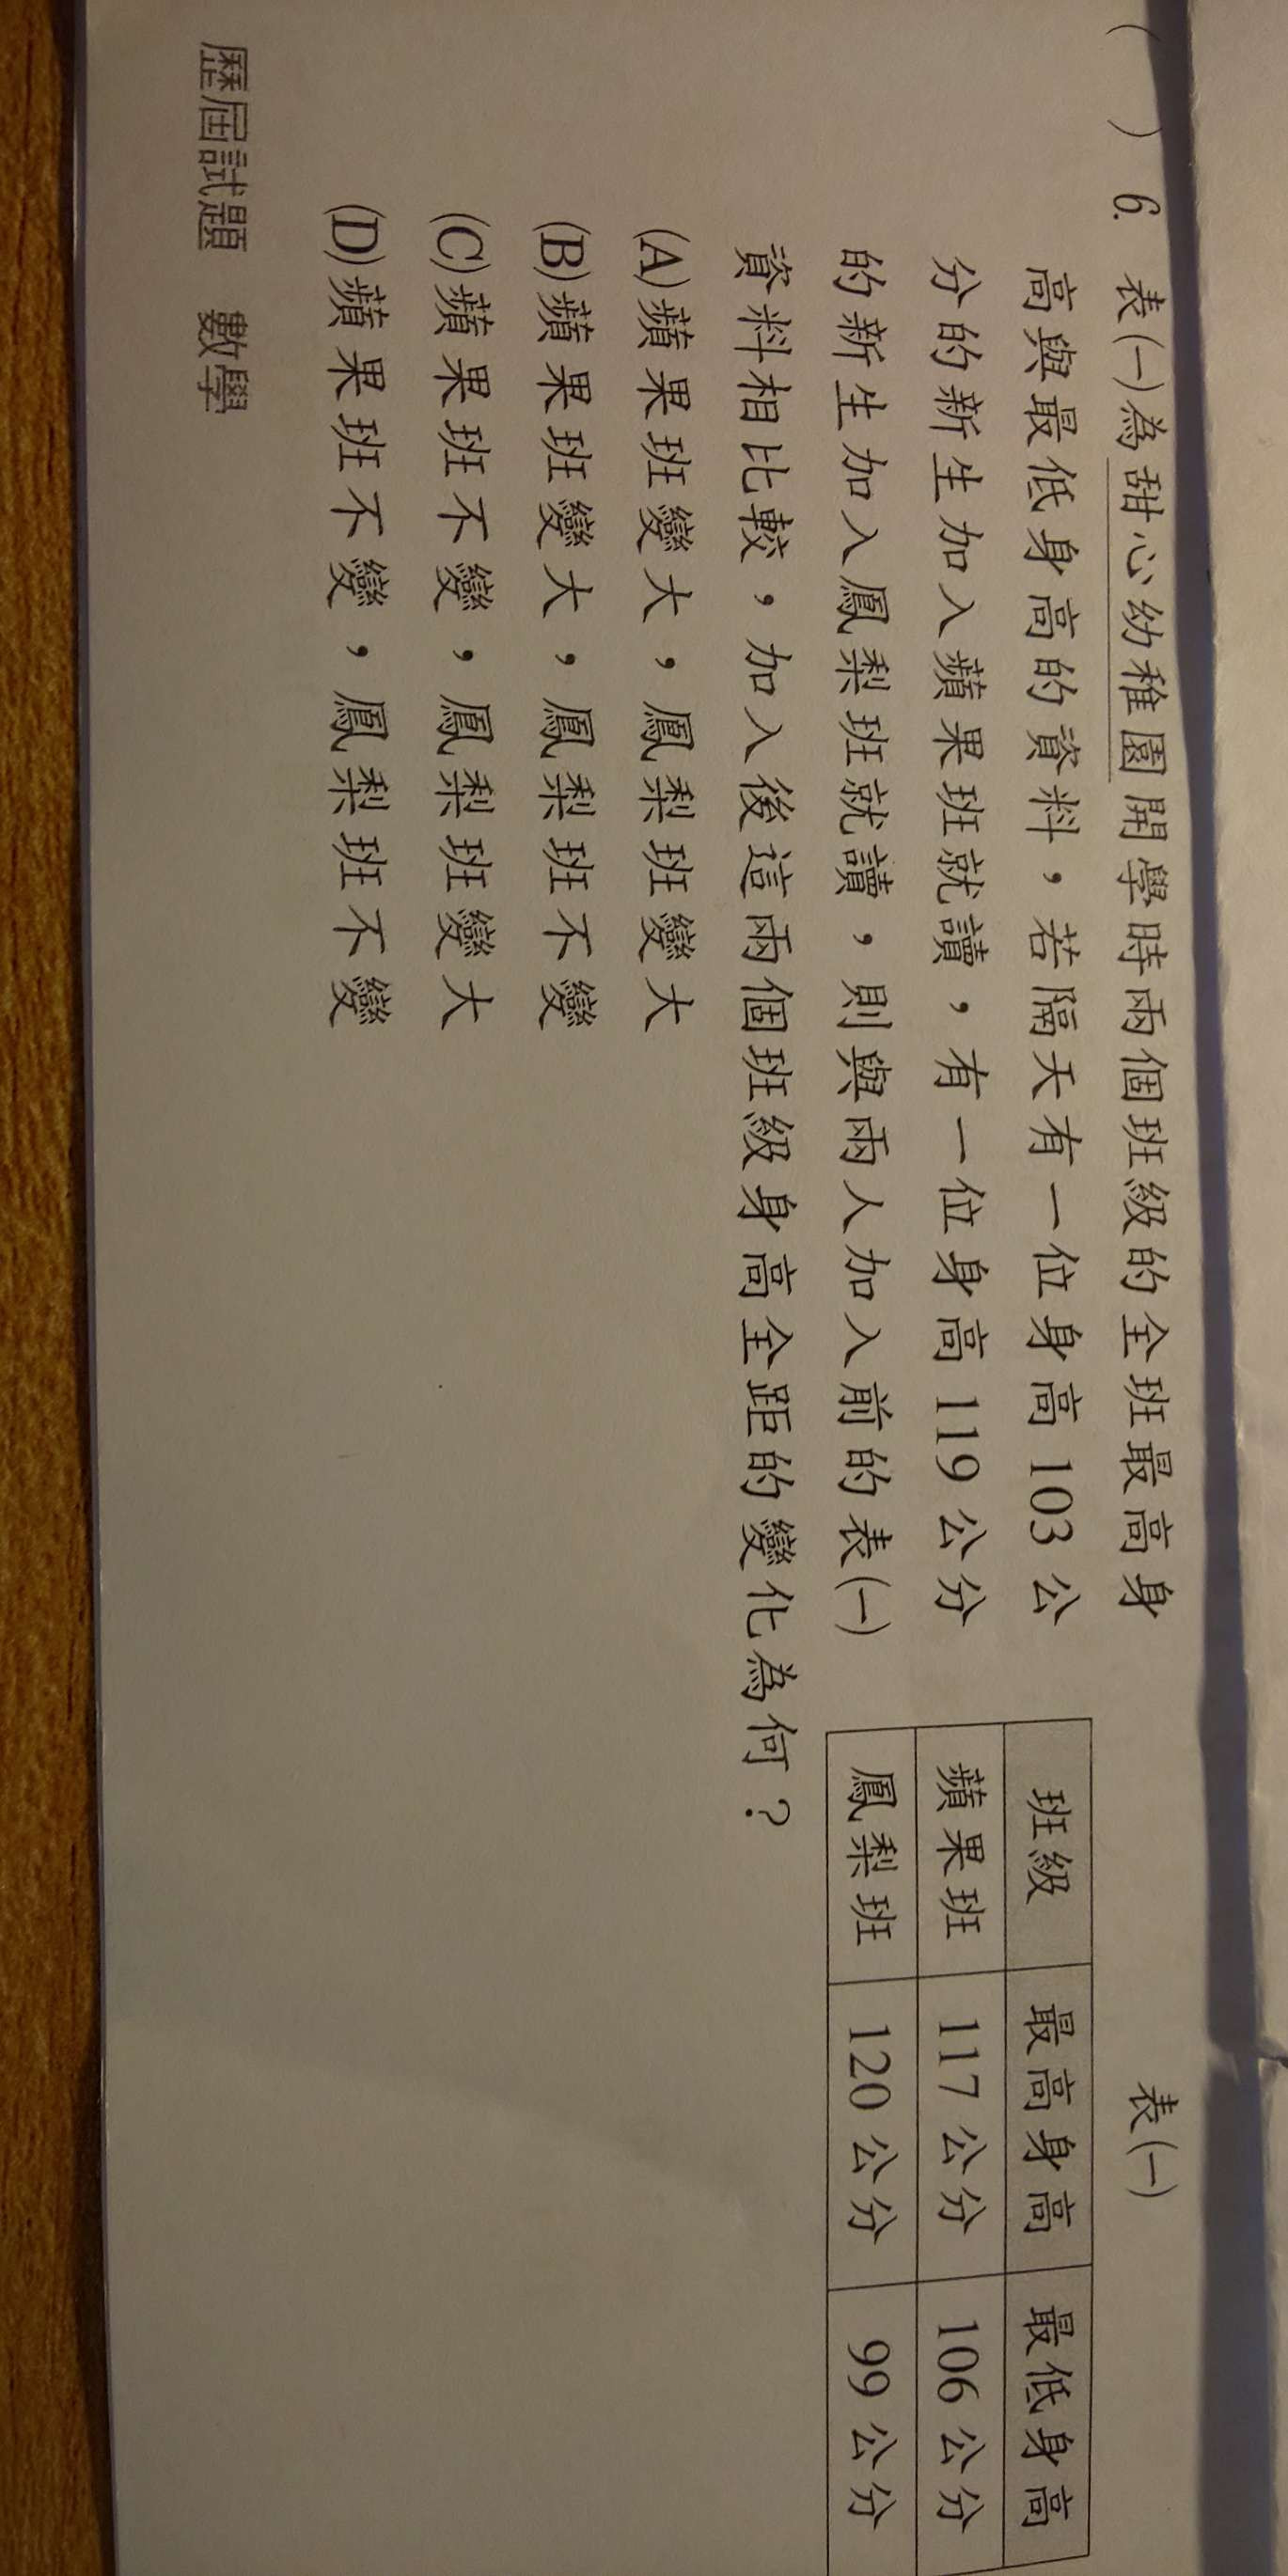 ( ) 6. 表(一)為甜心幼稚園開學時兩個班級的全班最高身
高與最低身高的資料，若隔天有一位身高 103 公
分的新生加入蘋果班就讀，有一位身高 119 公分
的新生加入鳳梨班就讀，則與兩人加入前的表(一)
資料相比較，加入後這兩個班級身高全距的變化為何？
表(一)
班級 最高身高 最低身高
蘋果班 117 公分 106 公分
鳳梨班 120 公分 99 公分
(A)蘋果班變大，鳳梨班變大
(B)蘋果班變大，鳳梨班不變
(C)蘋果班不變，鳳梨班變大
(D)蘋果班不變，鳳梨班不變
歷屆試題 數學